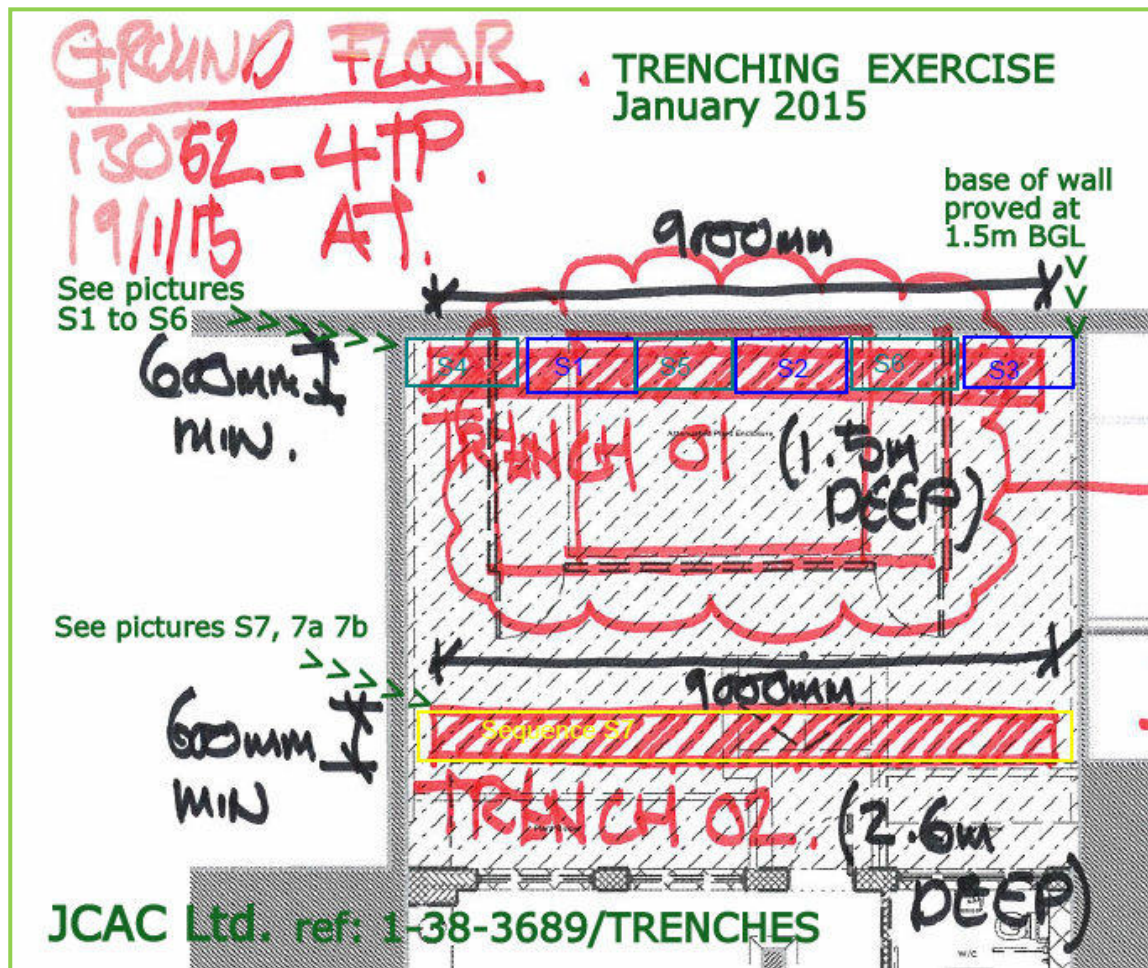 GROUND FLOOR.
13062_4TP.
19/1/15 AT.
TRENCHING EXERCISE
January 2015
base of wall
proved at
1.5m BGL
9000mm
See pictures
S1 to S6
600mm
MIN.
S4 S1 S5 S2 S6 S3
TRENCH 01
(1.5m
DEEP)
See pictures S7, 7a 7b
9000mm
600mm
MIN
Sequence S7
TRENCH 02.
(2.6m
DEEP)
JCAC Ltd. ref: 1-38-3689/TRENCHES
W/C